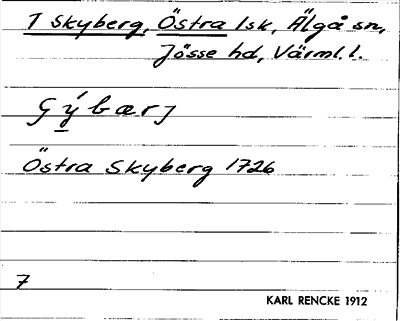 T Skyberg, Östra lsk, Älgå sn,
Jösse hd, Värml. l.
Östra Skyberg 1726
7
KARL RENCKE 1912